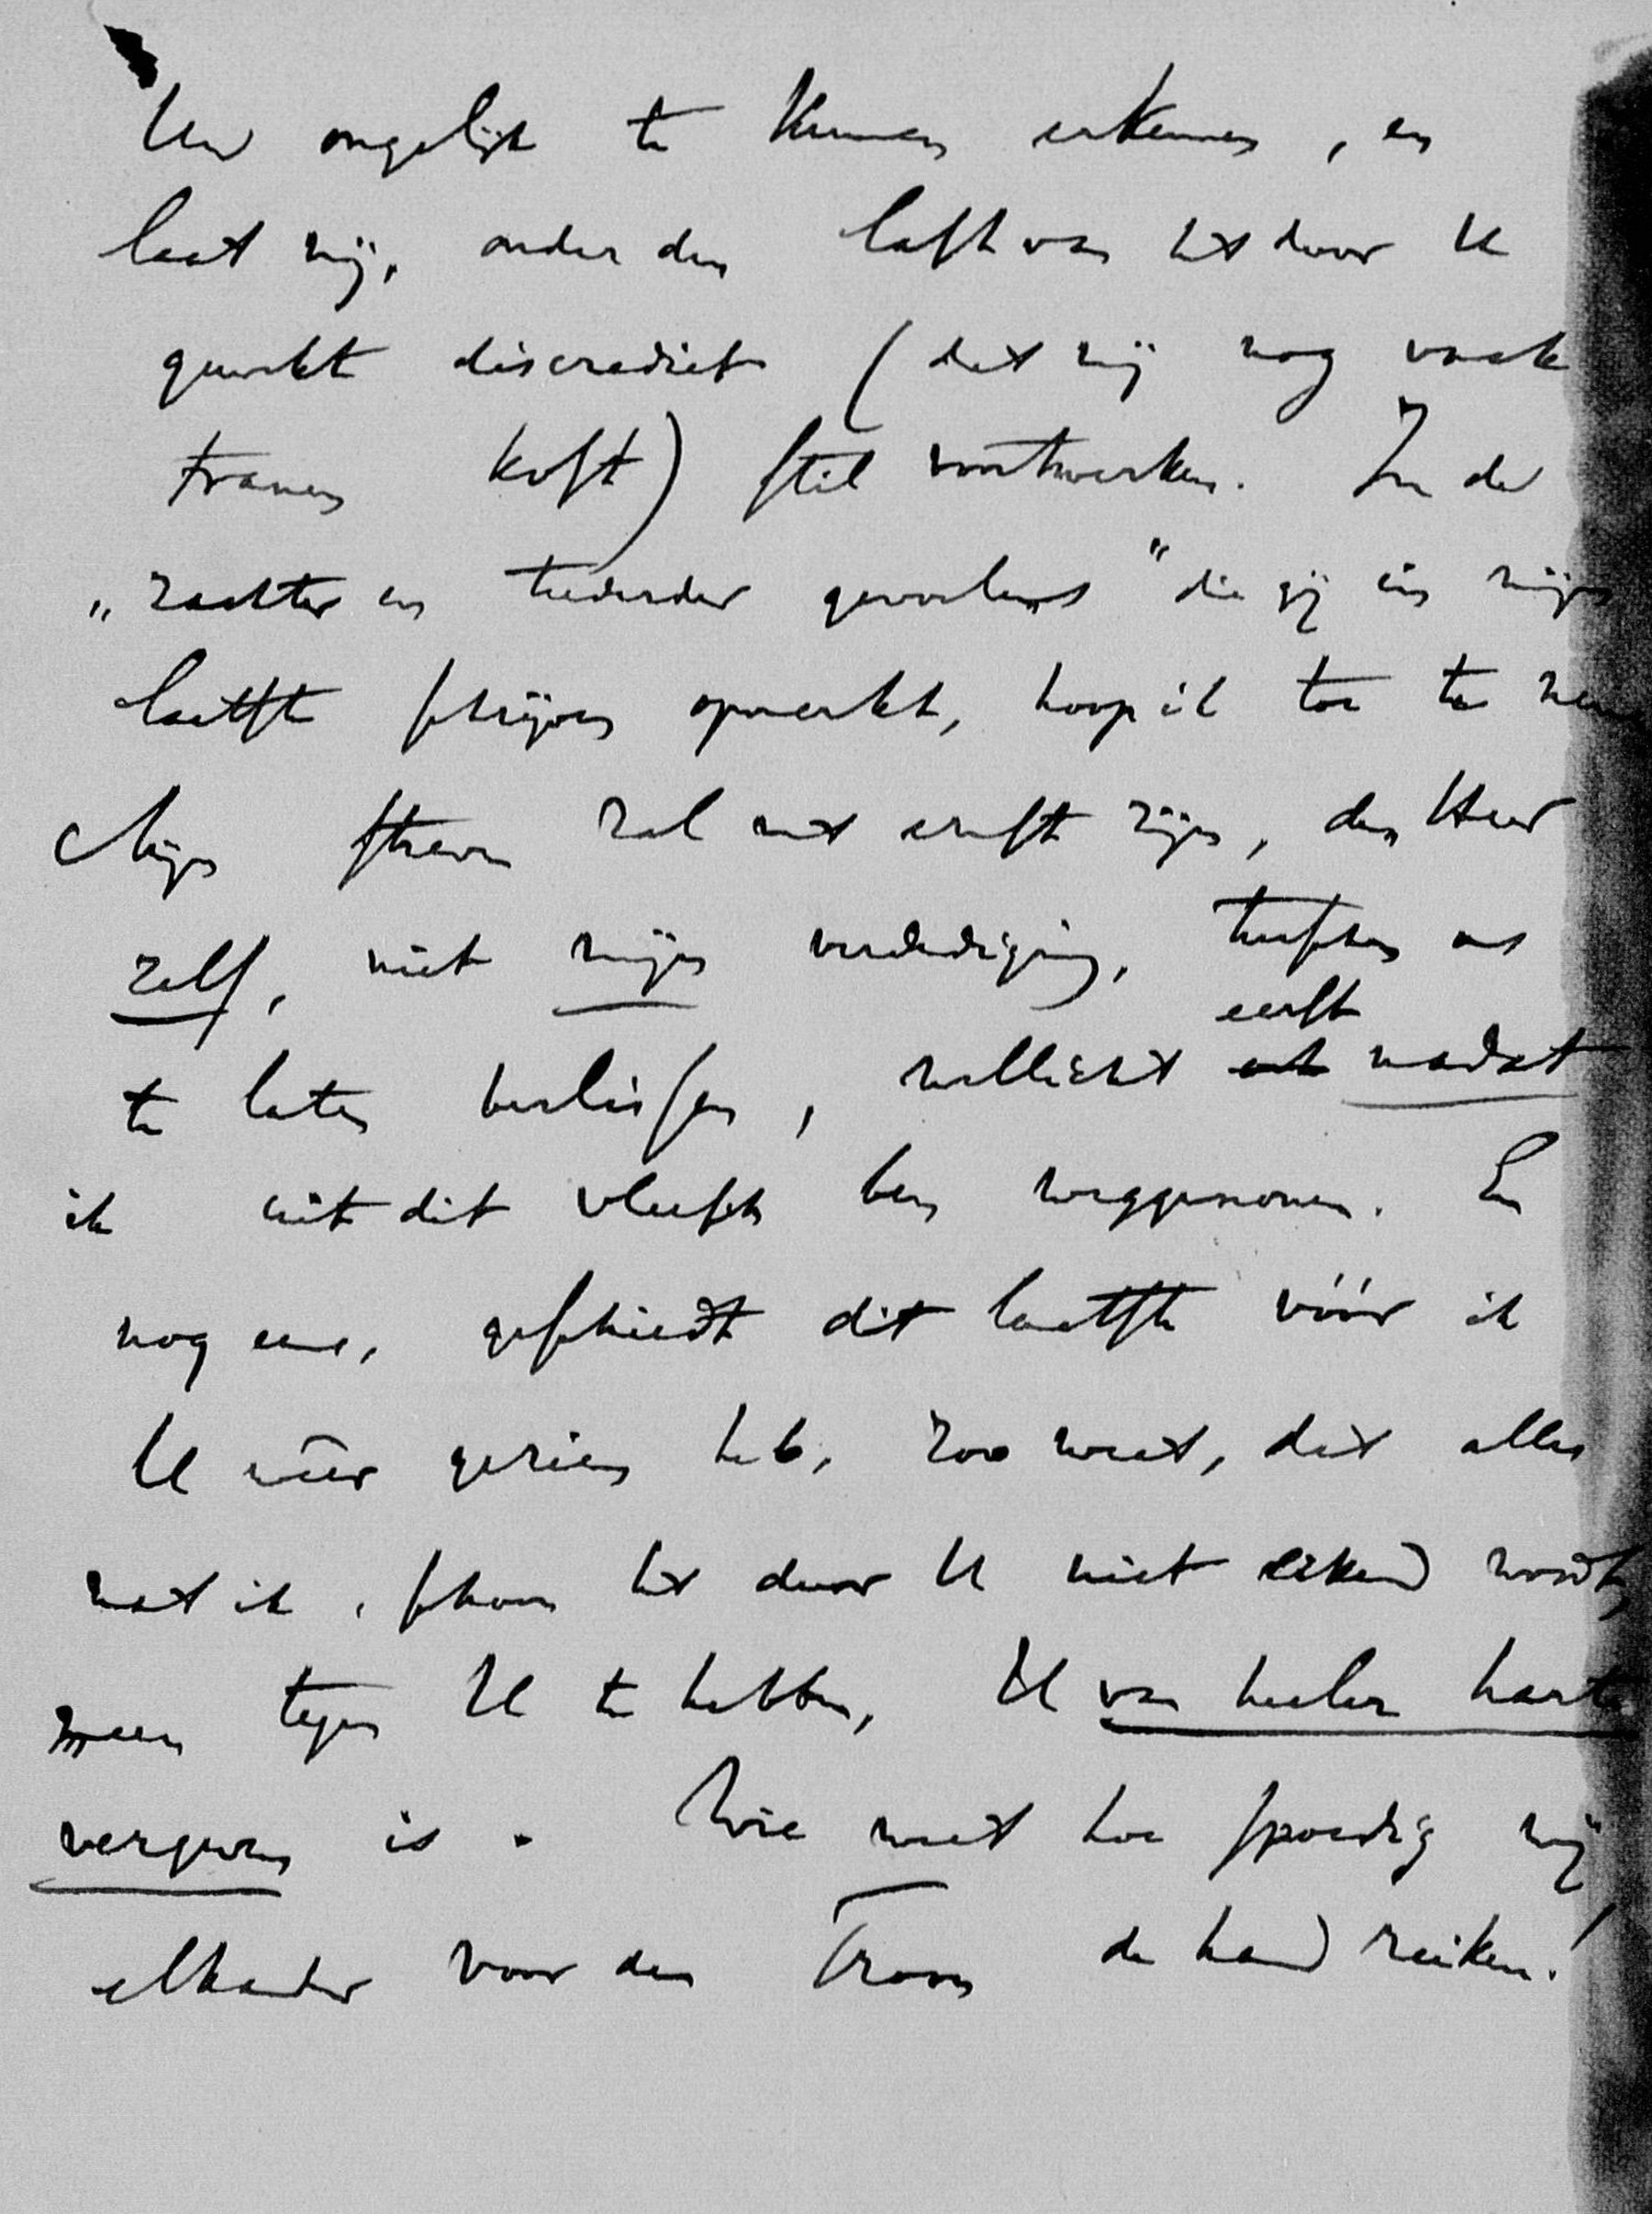 Uw ongelijk te kunnen erkennen, en
laat mij, onder den last van het door U
gewekt discrediet (dat mij nog vaak
tranen kost) stil voortwerken. In de
„zachter en teederder gevoelens" die gij in mijn
laatste schrijven opmerkt, hoop ik toe te
Mijn streven zal met ernst zijn, den Heer
zelf, niet mijn verdediging, tusschen ons
te laten beslissen, wellicht eerst nadat
ik uit dit vleesch ben weggenomen. En
nog eens, geschiedt dit laatste vóór ik
U wêer gezien heb, zoo weet, dat alles
wat ik, schoon het door U niet erkend wordt,
meen tegen U te hebben, U van heeler harte
vergeven is. Wie weet hoe spoedig wij
elkander voor den Troon de hand reiken!